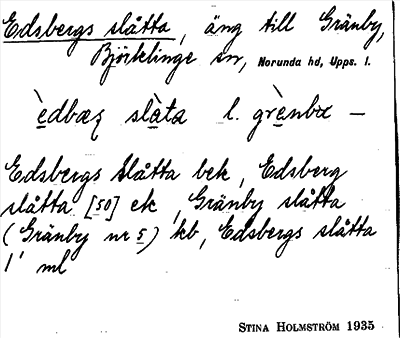 Edsbergs slåtta, äng till Gränby,
Björklinge sn, Norunda hd, Upps. l.
èdbæʒ slàta l. grènbɯ —
Edsbergs slåtta bek, Edsberg
slåtta [50] ek, Gränby slåtta
(Gränby nr 5) kb, Edsbergs slåtta
1' ml
STINA HOLMSTRÖM 1935